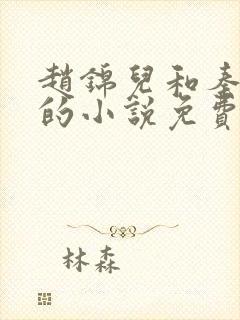 趙錦兒和秦
的小說免費
林森